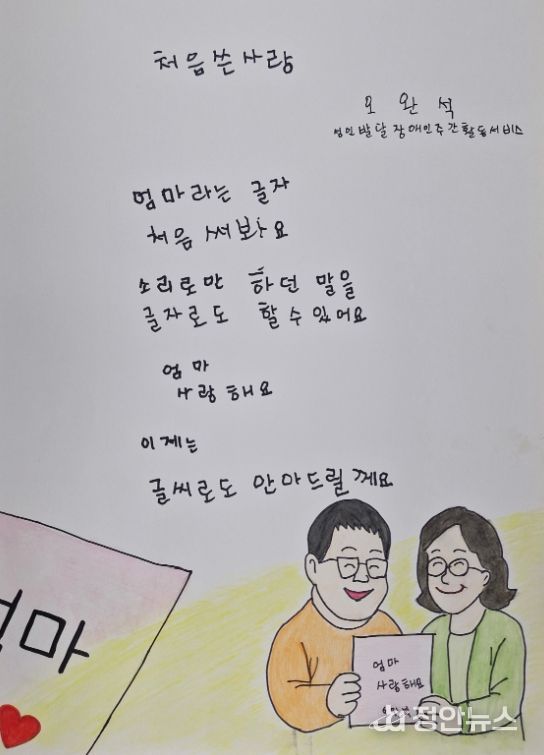 처음 쓴 사랑
오 완 석
성인발달장애인주간활동서비스
엄마라는 글자
처음 써봐요
소리로만 하던 말을
글자로도 할 수 있어요
엄마
사랑해요
이제는
글씨로도 안마드릴께요
엄마
엄마
사랑해요
정안뉴스